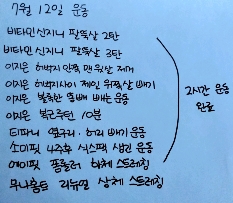 7월 12일 운동
비타민신지니 팔뚝살 2탄
비타민신지니 팔뚝살 3탄
이지은 허벅지 안쪽 맨위살 제거
이지은 허벅지사이 제일 위쪽살 빼기
이지은 볼록한 똥배 빼는 운동
이지은 복근루틴 10분
티파니 옆구리·허리 빼기 운동
소미핏 4주후 식스팩 생긴 운동
에이핏 폼롤러 하체 스트레칭
무나홈트 리뉴얼 상체 스트레칭
2시간 운동
완료